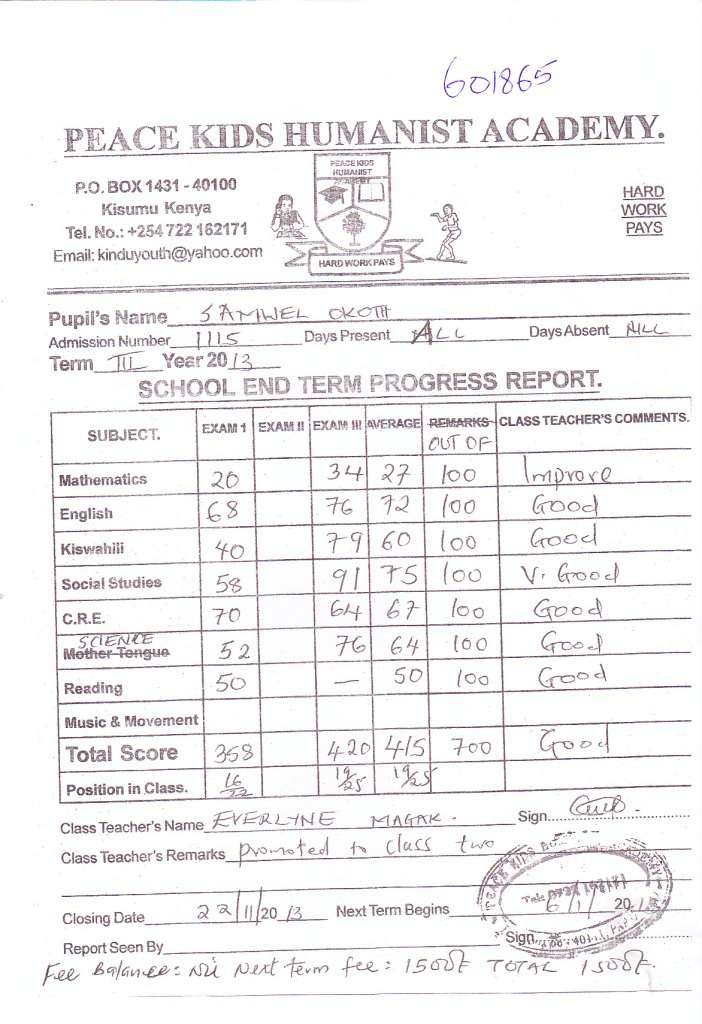 601865
PEACE KIDS HUMANIST ACADEMY.
P.O. BOX 1431 - 40100
Kisumu Kenya
Tel. No.: +254 722 162171
Email: kinduyouth@yahoo.com
PEACE KIDS
HUMANIST
ACADEMY
HARD WORK PAYS
HARD
WORK
PAYS
Pupil's Name SAMWEL OKOTH
Admission Number 1115 Days Present ALL Days Absent NILL
Term III Year 2013
SCHOOL END TERM PROGRESS REPORT.
SUBJECT. EXAM 1 EXAM II EXAM III AVERAGE REMARKS OUT OF CLASS TEACHER'S COMMENTS.
Mathematics 20 34 27 100 Improve
English 68 76 72 100 Good
Kiswahili 40 79 60 100 Good
Social Studies 58 91 75 100 V. Good
C.R.E. 70 64 67 100 Good
SCIENCE
Mother Tongue 52 76 64 100 Good
Reading 50 — 50 100 Good
Music & Movement
Total Score 358 420 415 700 Good
Position in Class. 16/22 19/25 19/25
Class Teacher's Name EVERLYNE MAGAK. Sign
Class Teacher's Remarks promoted to class two
Closing Date 22/11/2013 Next Term Begins 6/1/20
Report Seen By Sign
Fee Balance: Nil Next term fee: 1500/= TOTAL 1500/=